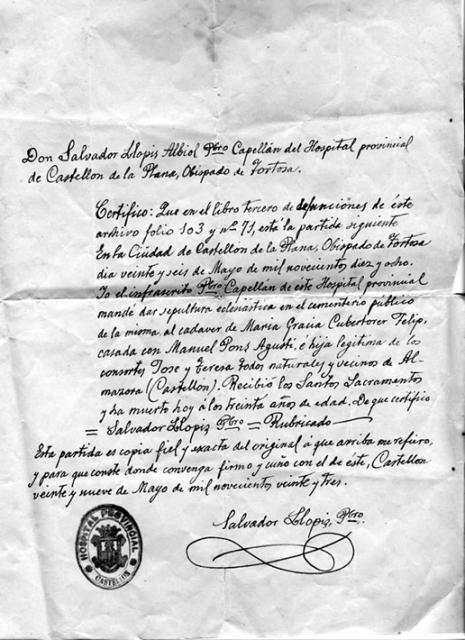 Don Salvador Llopis Albiol Pbro Capellán del Hospital provincial
de Castellon de la Plana, Obispado de Tortosa.
Certifico: Que en el libro tercero de defunciones de éste
archivo folio 103 y nº 71, está la partida siguiente
En la Ciudad de Castellon de la Plana, Obispado de Tortosa
dia veinte y seis de Mayo de mil novecientos diez y ocho.
Yo el infrascrito Pbro Capellan de éste Hospital provincial
mandé dar sepultura eclesiástica en el cementerio público
de la misma al cadaver de Maria Gracia Cubertorer Felip,
casada con Manuel Pons Agustí, é hija legitima de los
consortes Jose y Teresa todos naturales y vecinos de Al-
mazora (Castellon). Recibió los Santos Sacramentos
y ha muerto hoy á los treinta años de edad. De que certifico
= Salvador Llopis Pbro = Rubricado
Esta partida es copia fiel y exacta del original á que arriba me refiero,
y para que conste donde convenga firmo y cuño con el de este, Castellon
veinte y nueve de Mayo de mil novecientos veinte y tres.
Salvador Llopis, Pbro.
HOSPITAL PROVINCIAL
CASTELLON